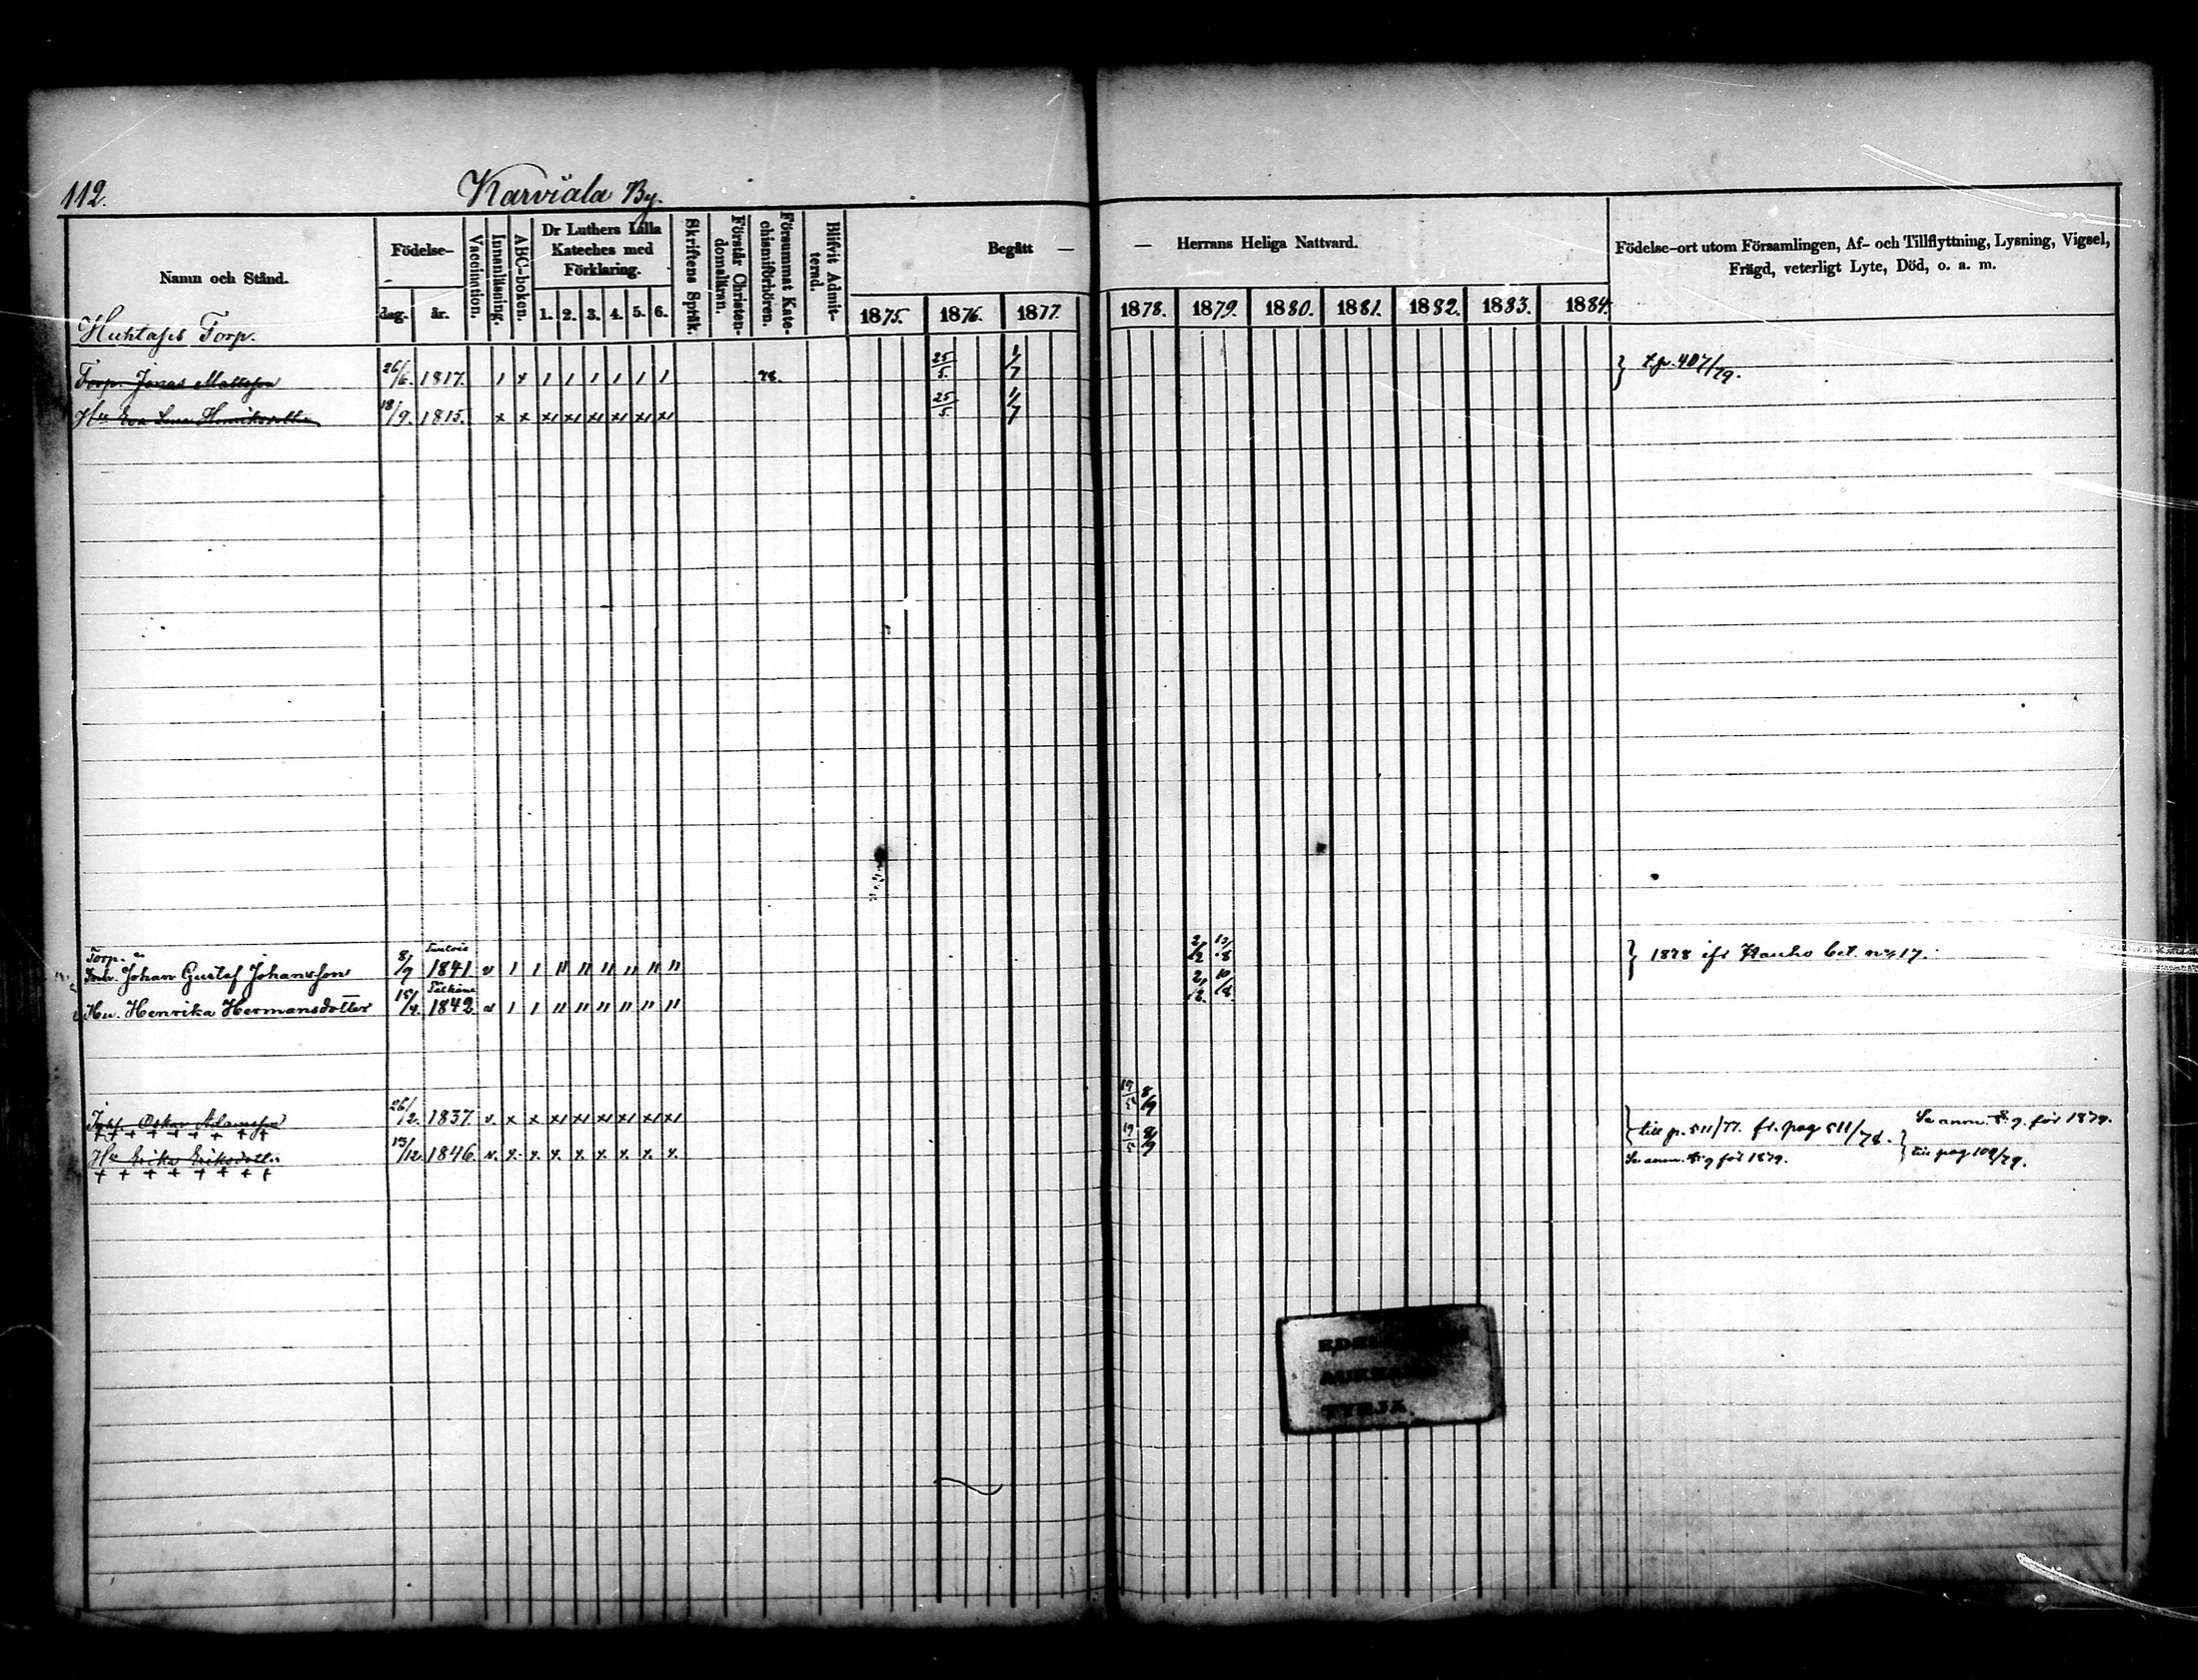 112.
Karviala By.
Namn och Stånd.
Födelse-
dag.
år.
Vaccination.
Innanläsning.
ABC-boken.
Dr Luthers Lilla
Kateches med
Förklaring.
1. 2. 3. 4. 5. 6.
Skriftens Språk.
Förstår Christen-
domsläran.
Försummat Kate-
chismiförhören.
Blifvit Admit-
terad.
Begått — — Herrans Heliga Nattvard.
1875. 1876. 1877. 1878. 1879. 1880. 1881. 1882. 1883. 1884.
Födelse-ort utom Församlingen, Af- och Tillflyttning, Lysning, Vigsel,
Frägd, veterligt Lyte, Död, o. a. m.
Torp.
Torp. Jonas Mattsson 26/6. 1817. 1 x 1 1 1 1 1 1 78. 25/5. 1/7 407/79.
Hu Eva Lena Henriksdotter 18/9. 1815. x x x1 x1 x1 x1 x1 x1 25/5. 1/7
Torp.
Johan Gustaf Johansson 8/9 1841 v 1 1 11 11 11 11 11 11 1878 ifr Rauho bet. no 17.
Pälkäne
Hu. Henrika Hermansdotter 1842 v 1 1 11 11 11 11 11 11
Oskar Adamsson 26/2. 1837. v. x x x1 x1 x1 x1 x1 x1 19/5 8/9 till p. 511/77. fr. pag 511/78. Se anm. för 1879.
Hu Erika Eriksdotter 13/12. 1846. v. x. x. x. x. x. x. x. x. 19/5 8/9 Se anm. för 1879. till pag 109/79.